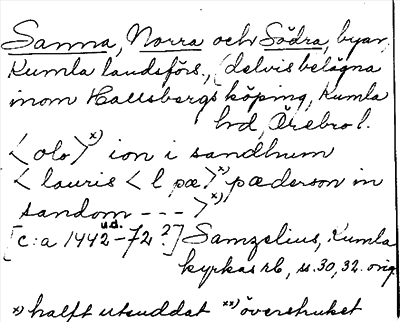 Sanna, Norra och Södra, byar,
Kumla landsförs., (delvis belägna
inom Hallsbergs köping, Kumla
hd, Örebro l.
<olo>x) ion i sandhum
<lauris <l pæ>x) pæderson in
sandom --->x)
[c:a 1442-72 u.d.?] Samzelius, Kumla
kyrkas rb, s. 30, 32. orig
x) halft utsuddat xx) överstruket